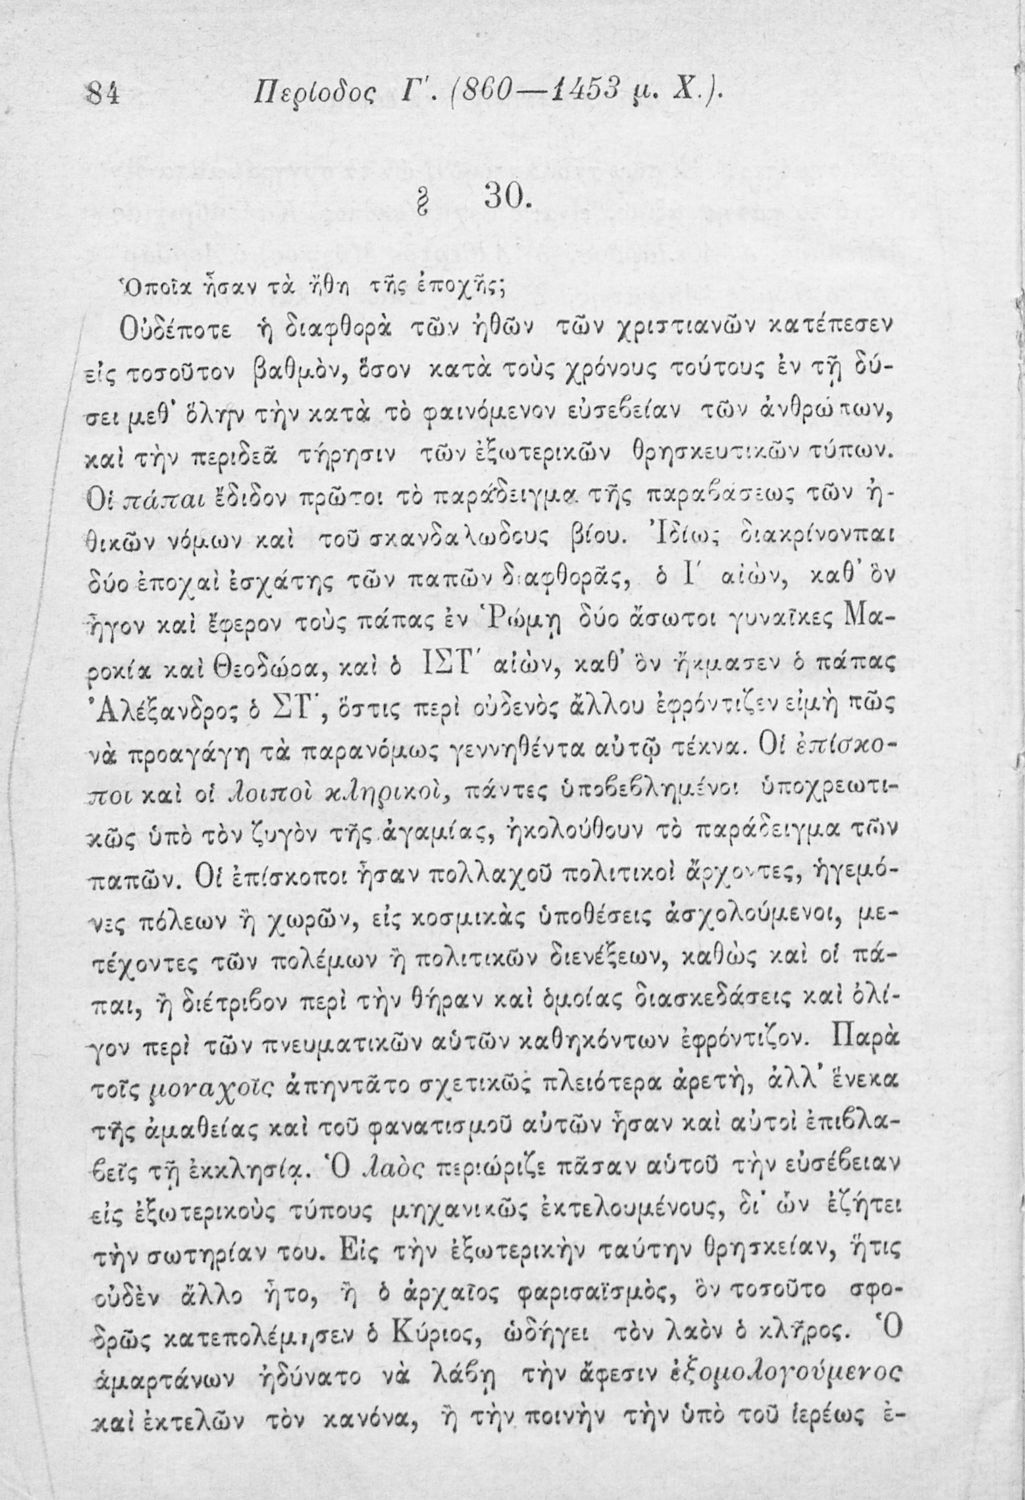 84 Περίοδος Γ'. (860—1453 μ. Χ.).
§ 30.
Ὁποῖα ἦσαν τὰ ἤθη τῆς ἐποχῆς;
Οὐδέποτε ἡ διαφθορὰ τῶν ἠθῶν τῶν χριστιανῶν κατέπεσεν
εἰς τοσοῦτον βαθμὸν, ὅσον κατὰ τοὺς χρόνους τούτους ἐν τῇ δύ-
σει μεθ' ὅλην τὴν κατὰ τὸ φαινόμενον εὐσεβείαν τῶν ἀνθρώπων,
καὶ τὴν περιδεᾶ τήρησιν τῶν ἐξωτερικῶν θρησκευτικῶν τύπων.
Οἱ πάπαι ἔδιδον πρῶτοι τὸ παράδειγμα τῆς παραβάσεως τῶν ἠ-
θικῶν νόμων καὶ τοῦ σκανδαλωδους βίου. Ἰδίως διακρίνονπαι
δύο ἐποχαὶ ἐσχάτης τῶν παπῶν διαφθορᾶς, ὁ Ι' αἰὼν, καθ' ὃν
ἦγον καὶ ἔφερον τοὺς πάπας ἐν Ῥώμῃ δύο ἄσωτοι γυναῖκες Μα-
ροκία καὶ Θεοδώρα, καὶ ὁ ΙΣΤ' αἰὼν, καθ' ὃν ἤκμασεν ὁ πάπας
Ἀλέξανδρος ὁ ΣΤ', ὅστις περὶ οὐδενὸς ἄλλου ἐφρόντιζεν εἰμὴ πῶς
νὰ προαγάγη τὰ παρανόμως γεννηθέντα αὐτῷ τέκνα. Οἱ ἐπίσκο-
ποι καὶ οἱ λοιποὶ κληρικοὶ, πάντες ὑποβεβλημένοι ὑποχρεωτι-
κῶς ὑπὸ τὸν ζυγὸν τῆς ἀγαμίας, ἠκολούθουν τὸ παράδειγμα τῶν
παπῶν. Οἱ ἐπίσκοποι ἦσαν πολλαχοῦ πολιτικοὶ ἄρχοντες, ἡγεμό-
νες πόλεων ἢ χωρῶν, εἰς κοσμικὰς ὑποθέσεις ἀσχολούμενοι, με-
τέχοντες τῶν πολέμων ἢ πολιτικῶν διενέξεων, καθὼς καὶ οἱ πά-
παι, ἢ διέτριβον περὶ τὴν θήραν καὶ ὁμοίας διασκεδάσεις καὶ ὀλί-
γον περὶ τῶν πνευματικῶν αὑτῶν καθηκόντων ἐφρόντιζον. Παρὰ
τοῖς μοναχοῖς ἀπηντᾶτο σχετικῶς πλειότερα ἀρετὴ, ἀλλ' ἕνεκα
τῆς ἀμαθείας καὶ τοῦ φανατισμοῦ αὐτῶν ἦσαν καὶ αὐτοὶ ἐπιβλα-
βεῖς τῇ ἐκκλησίᾳ. Ὁ λαὸς περιώριζε πᾶσαν αὑτοῦ τὴν εὐσέβειαν
εἰς ἐξωτερικοὺς τύπους μηχανικῶς ἐκτελουμένους, δι' ὧν ἐζήτει
τὴν σωτηρίαν του. Εἰς τὴν ἐξωτερικὴν ταύτην θρησκείαν, ἥτις
οὐδὲν ἄλλο ἦτο, ἢ ὁ ἀρχαῖος φαρισαϊσμὸς, ὃν τοσοῦτο σφο-
δρῶς κατεπολέμησεν ὁ Κύριος, ὡδήγει τὸν λαὸν ὁ κλῆρος. Ὁ
ἁμαρτάνων ἠδύνατο νὰ λάβῃ τὴν ἄφεσιν ἐξομολογούμενος
καὶ ἐκτελῶν τὸν κανόνα, ἢ τὴν ποινὴν τὴν ὑπὸ τοῦ ἱερέως ἐ-